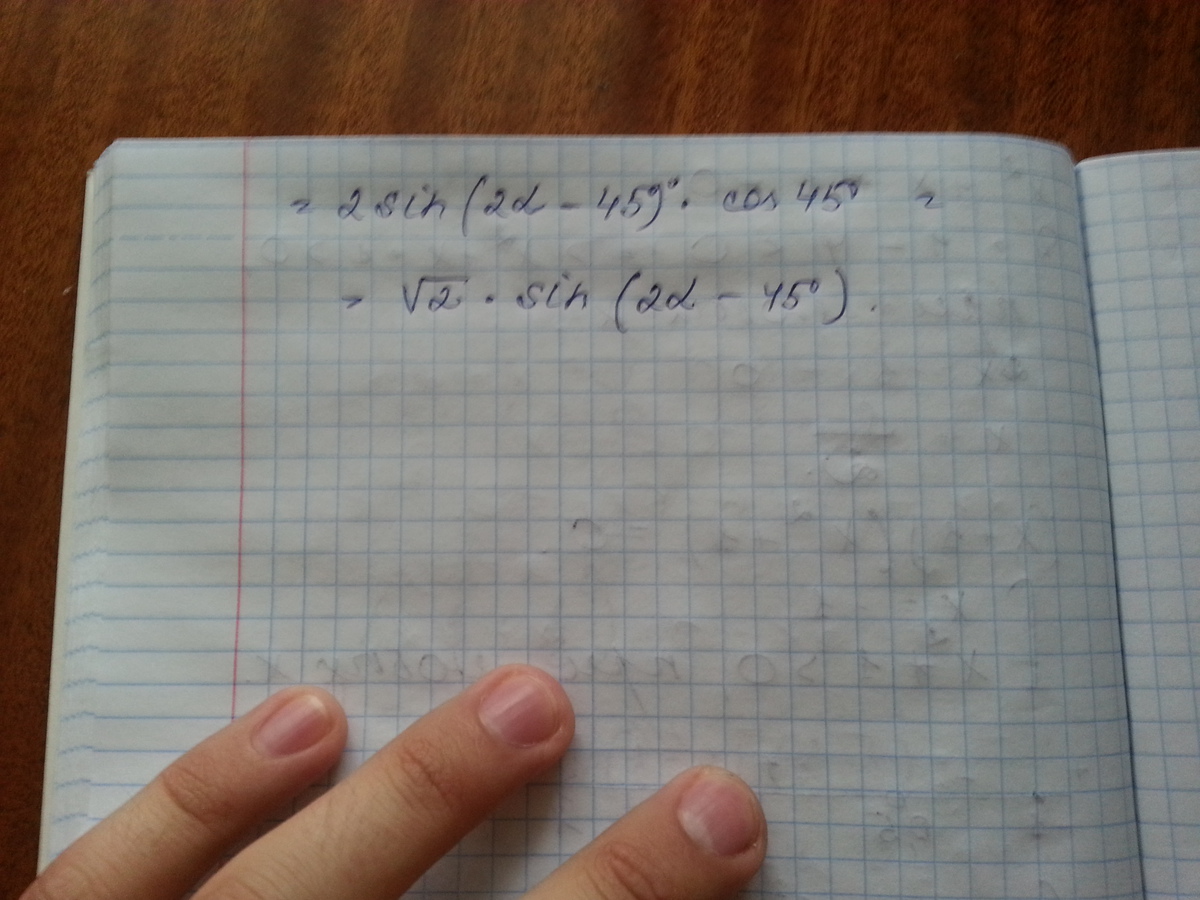 = 2 sin (2α - 45)° · cos 45° =
= √2 · sin (2α - 45°).